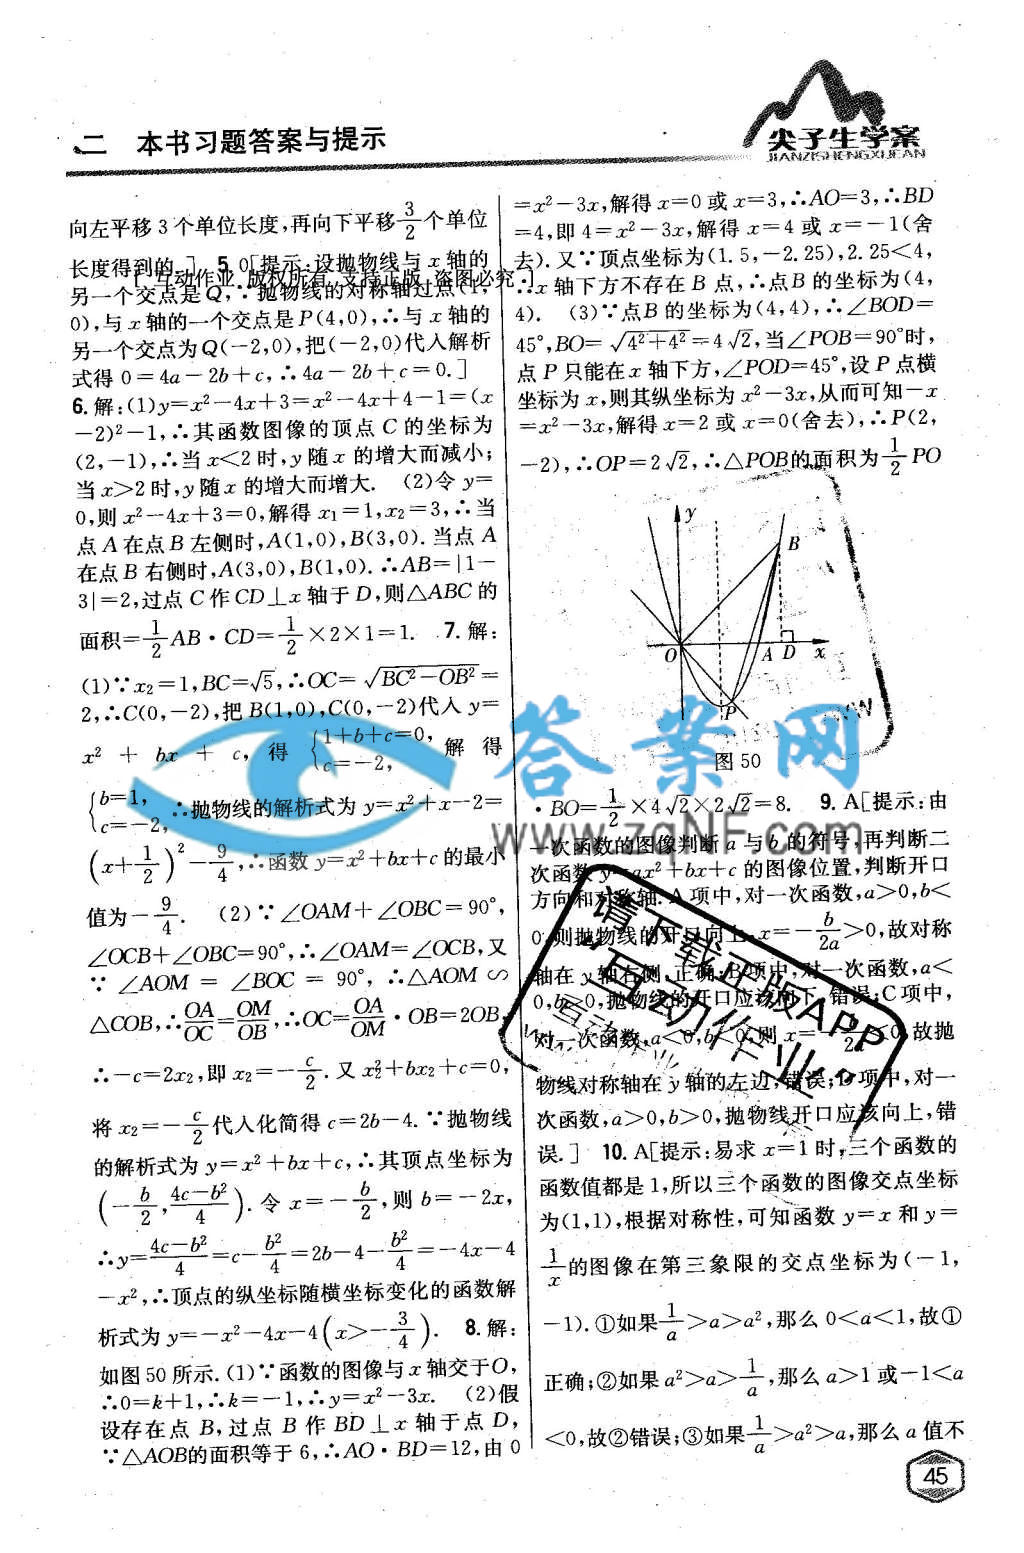 二 本书习题答案与提示
尖子生学案
JIANZISHENGXUEAN
向左平移3个单位长度,再向下平移3/2个单位
长度得到的.] 5. 0[提示:设抛物线与x轴的
[ 互动作业 版权所有 支持正版 盗图必究 ]
另一个交点是Q,∵抛物线的对称轴过点(1,
0),与x轴的一个交点是P(4,0),∴与x轴的
另一个交点为Q(-2,0),把(-2,0)代入解析
式得0=4a-2b+c,∴4a-2b+c=0.]
6.解:(1)y=x²-4x+3=x²-4x+4-1=(x
-2)²-1,∴其函数图像的顶点C的坐标为
(2,-1),∴当x<2时,y随x的增大而减小;
当x>2时,y随x的增大而增大. (2)令y=
0,则x²-4x+3=0,解得x₁=1,x₂=3,∴当
点A在点B左侧时,A(1,0),B(3,0).当点A
在点B右侧时,A(3,0),B(1,0).∴AB=|1-
3|=2,过点C作CD⊥x轴于D,则△ABC的
面积=1/2AB·CD=1/2×2×1=1. 7.解:
(1)∵x₂=1,BC=√5,∴OC=√(BC²-OB²)=
2,∴C(0,-2),把B(1,0),C(0,-2)代入y=
x²+bx+c,得{1+b+c=0, c=-2, 解得
{b=1, c=-2, ∴抛物线的解析式为y=x²+x-2=
(x+1/2)²-9/4,∴函数y=x²+bx+c的最小
值为-9/4. (2)∵∠OAM+∠OBC=90°,
∠OCB+∠OBC=90°,∴∠OAM=∠OCB,又
∵∠AOM=∠BOC=90°,∴△AOM∽
△COB,∴OA/OC=OM/OB,∴OC=OA/OM·OB=2OB,
∴-c=2x₂,即x₂=-c/2.又x₂²+bx₂+c=0,
将x₂=-c/2代入化简得c=2b-4.∵抛物线
的解析式为y=x²+bx+c,∴其顶点坐标为
(-b/2,(4c-b²)/4).令x=-b/2,则b=-2x,
∴y=(4c-b²)/4=c-b²/4=2b-4-b²/4=-4x-4
-x²,∴顶点的纵坐标随横坐标变化的函数解
析式为y=-x²-4x-4(x>-3/4). 8.解:
如图50所示.(1)∵函数的图像与x轴交于O,
∴0=k+1,∴k=-1,∴y=x²-3x. (2)假
设存在点B,过点B作BD⊥x轴于点D,
∵△AOB的面积等于6,∴AO·BD=12,由0
=x²-3x,解得x=0或x=3,∴AO=3,∴BD
=4,即4=x²-3x,解得x=4或x=-1(舍
去).又∵顶点坐标为(1.5,-2.25),2.25<4,
∴x轴下方不存在B点,∴点B的坐标为(4,
4). (3)∵点B的坐标为(4,4),∴∠BOD=
45°,BO=√(4²+4²)=4√2,当∠POB=90°时,
点P只能在x轴下方,∠POD=45°,设P点横
坐标为x,则其纵坐标为x²-3x,从而可知-x
=x²-3x,解得x=2或x=0(舍去),∴P(2,
-2),∴OP=2√2,∴△POB的面积为1/2PO
y
B
O
A D x
P
图50
·BO=1/2×4√2×2√2=8. 9. A[提示:由
一次函数的图像判断a与b的符号,再判断二
次函数y=ax²+bx+c的图像位置,判断开口
方向和对称轴.A项中,对一次函数,a>0,b<
0,则抛物线的开口向上,x=-b/2a>0,故对称
轴在y轴右侧,正确;B项中,对一次函数,a<
0,b>0,抛物线的开口应该向下,错误;C项中,
对一次函数,a<0,b<0,则x=-b/2a<0,故抛
物线对称轴在y轴的左边,错误;D项中,对一
次函数,a>0,b>0,抛物线开口应该向上,错
误.] 10. A[提示:易求x=1时,三个函数的
函数值都是1,所以三个函数的图像交点坐标
为(1,1),根据对称性,可知函数y=x和y=
1/x的图像在第三象限的交点坐标为(-1,
-1).①如果1/a>a>a²,那么0<a<1,故①
正确;②如果a²>a>1/a,那么a>1或-1<a
<0,故②错误;③如果1/a>a²>a,那么a值不
答案网
www.zqNF.com
请下载正版APP
互动作业
45